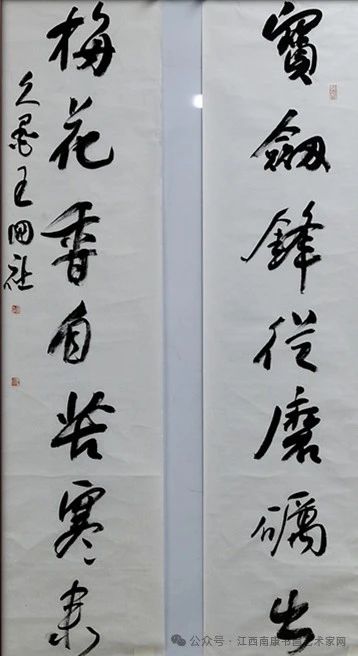 寶劔鋒從磨礪出
梅花香自苦寒來
王國
公众号·江西南康书画艺术家网